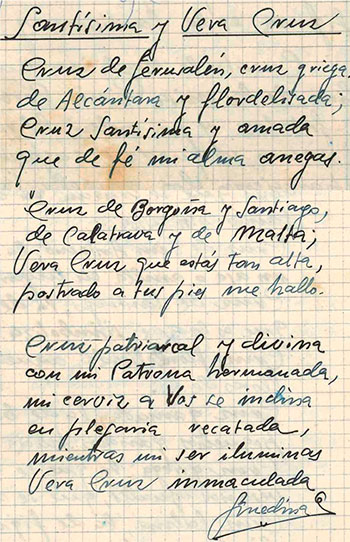 Santísima y Vera Cruz
Cruz de Jerusalén, cruz griega,
de Alcántara y flordelisada;
Cruz Santísima y amada
que de fé mi alma anegas.
Cruz de Borgoña y Santiago,
de Calatrava y de Malta;
Vera Cruz que estás tan alta,
postrado a tus pies me hallo.
Cruz patriarcal y divina
con mi Patrona hermanada,
mi cerviz a Vos se inclina
en plegaria recatada,
mientras mi ser iluminas
Vera Cruz inmaculada